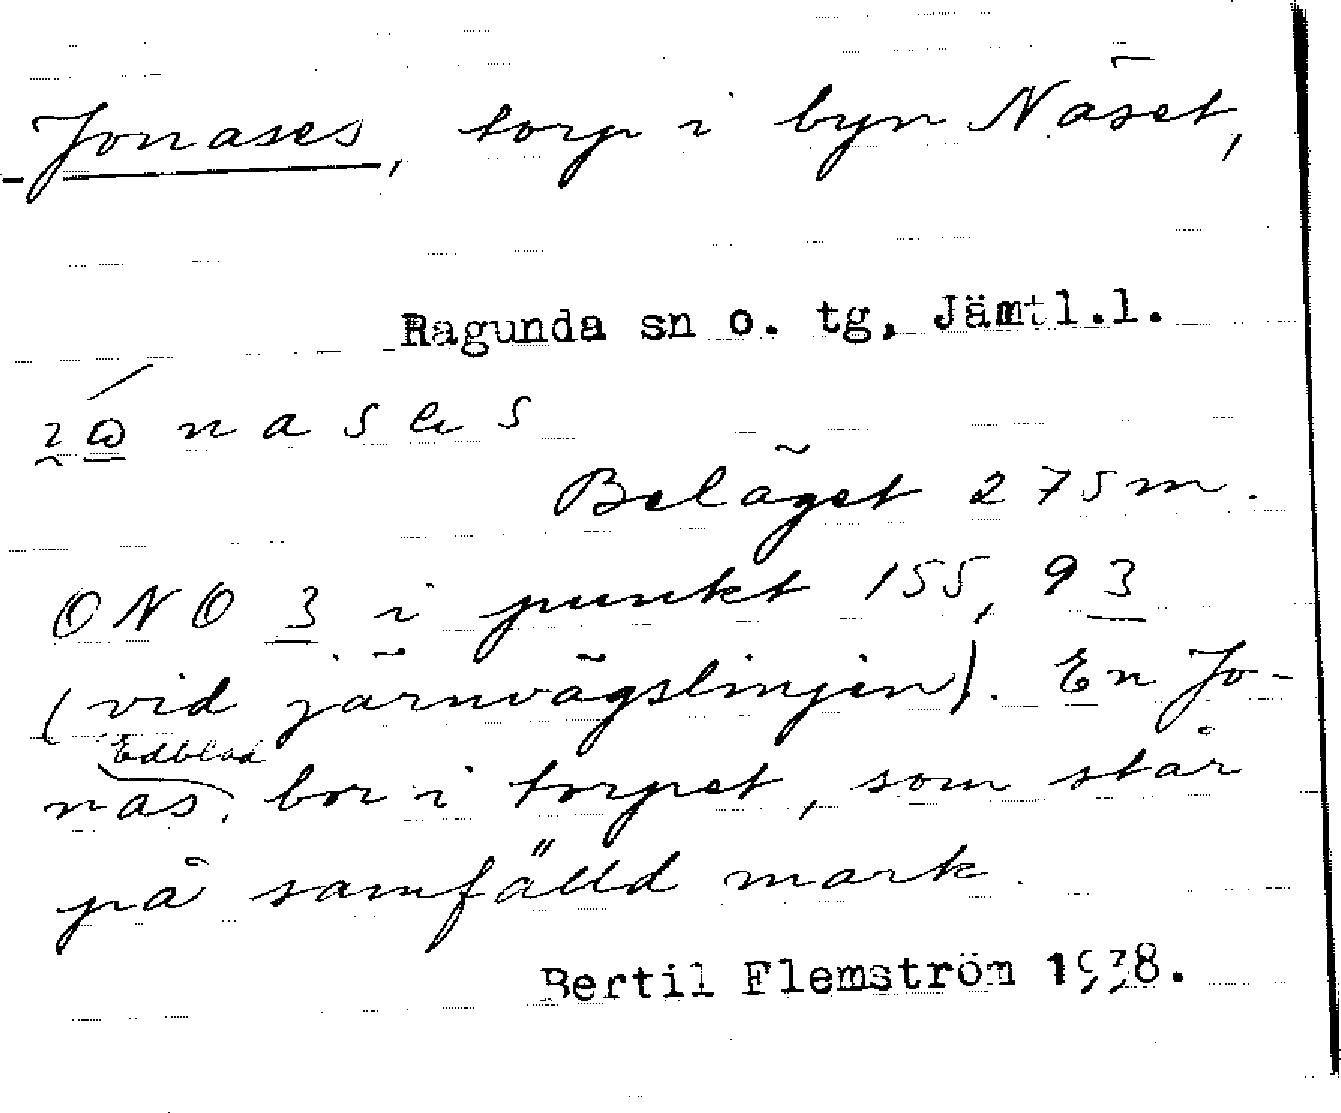 Jonases, torp i byn Näset,
Ragunda sn o. tg, Jämtl.l.
nases
Beläget 275 m.
ONO 3 i punkt 155,93
(vid järnvägslinjen). En Jo-
nas Edblad bor i torpet, som står
på samfälld mark.
Bertil Flemström 1938.